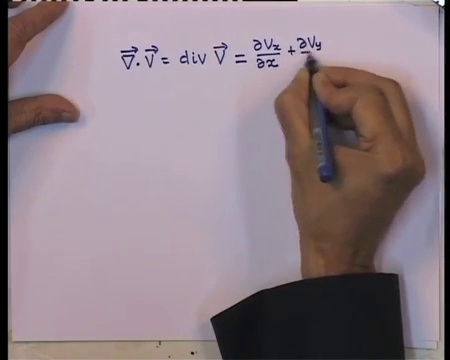 ∇⃗ . V⃗ = div V⃗ = ∂Vx/∂x + ∂Vy/